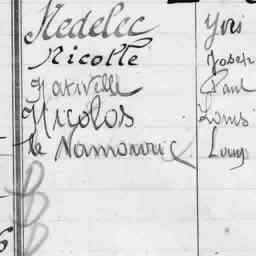 Nedelec Yves
Nicolle Joseph
Nativelle Paul
Nicolas Louis
Le Namouric Louis